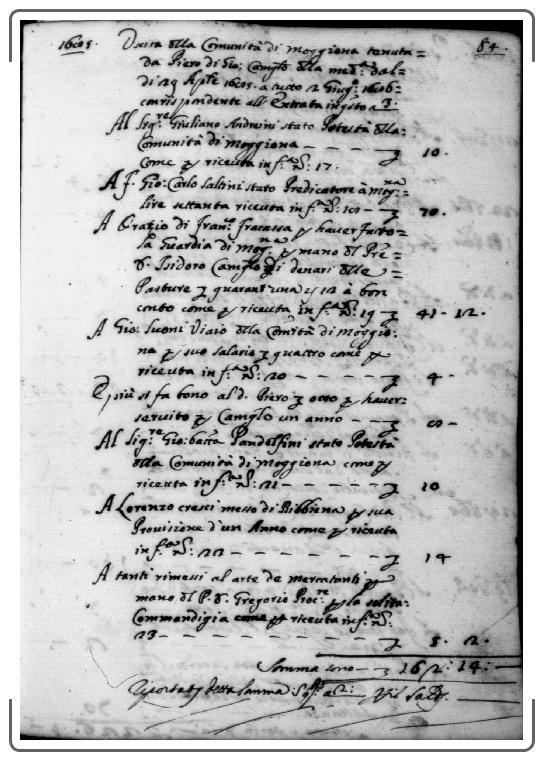 1605. Uscita della Comunità di Moggiona tenuta= 84.
da Piero di Gio: Camglo della med.a dal=
di 29 Aple 1605. a tutto 2 Giug.o 1606=
corrispondente all'Entrata in q.sto a 3.
Al Sig.re Giuliano Andreini stato Potestà della=
Comunità di Moggiona — — — 10.
Come p riceuta in f.a N.: 17.
A f. Gio: Carlo Saltini stato Predicatore à Mog.na=
lire settanta riceuta in f.a N.: 18 — — 70.
A Orazio di Fran.co Fracassa p haver fatto=
la Guardia di Mog.na p mano del Pre=
D. Isidoro Camglo di denari delle=
Pasture quarant'una 12 à bon
conto come p riceuta in f.a N.: 19 41 - 12.
A Gio: Viaio della Com.ità di Moggio=
na p suo Salario quattro come p
riceuta in f.a N.: 20 — — — — 4 -
E più si fa bono al d. Piero otto p haver=
servito p Camglo un anno — — 8 -
Al Sig.re Gio: batta Pandolfini stato Potestà
della Comunità di Moggiona come p
riceuta in f.a N.: 21 — — — — 10
A Lorenzo Cresci messo di Bibbiena p sua
Provisione d'un Anno come p riceuta
in f.a N.: 22 — — — — — — 14
A tanti rimessi al arte de mercatanti p
mano del P. D. Gregorio Proc.re p la solita=
Commandigia come p riceuta in f.a N.:
23 — — — — — — — — 5. 2.
Somma sono — — 162: 14:
Riportata detta Somma a 2: